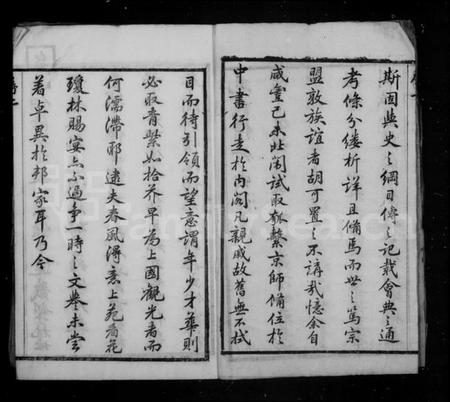 斯固與史之綱目傳之記載會典之通
考條分縷析詳且備焉而世之篤宗
盟敦族誼者胡可置之不講哉憶余自
咸豐己未北闈試取瓠繫京師備位於
中書行走於内閣凡親戚故舊無不拭
目而待引領而望意謂年少才華則
必取青紫如拾芥早為上國觀光者而
何濡滯耶逮夫春風得意上苑看花
瓊林賜宴亦不過争一時之文譽未嘗
著卓異於邦家耳乃今